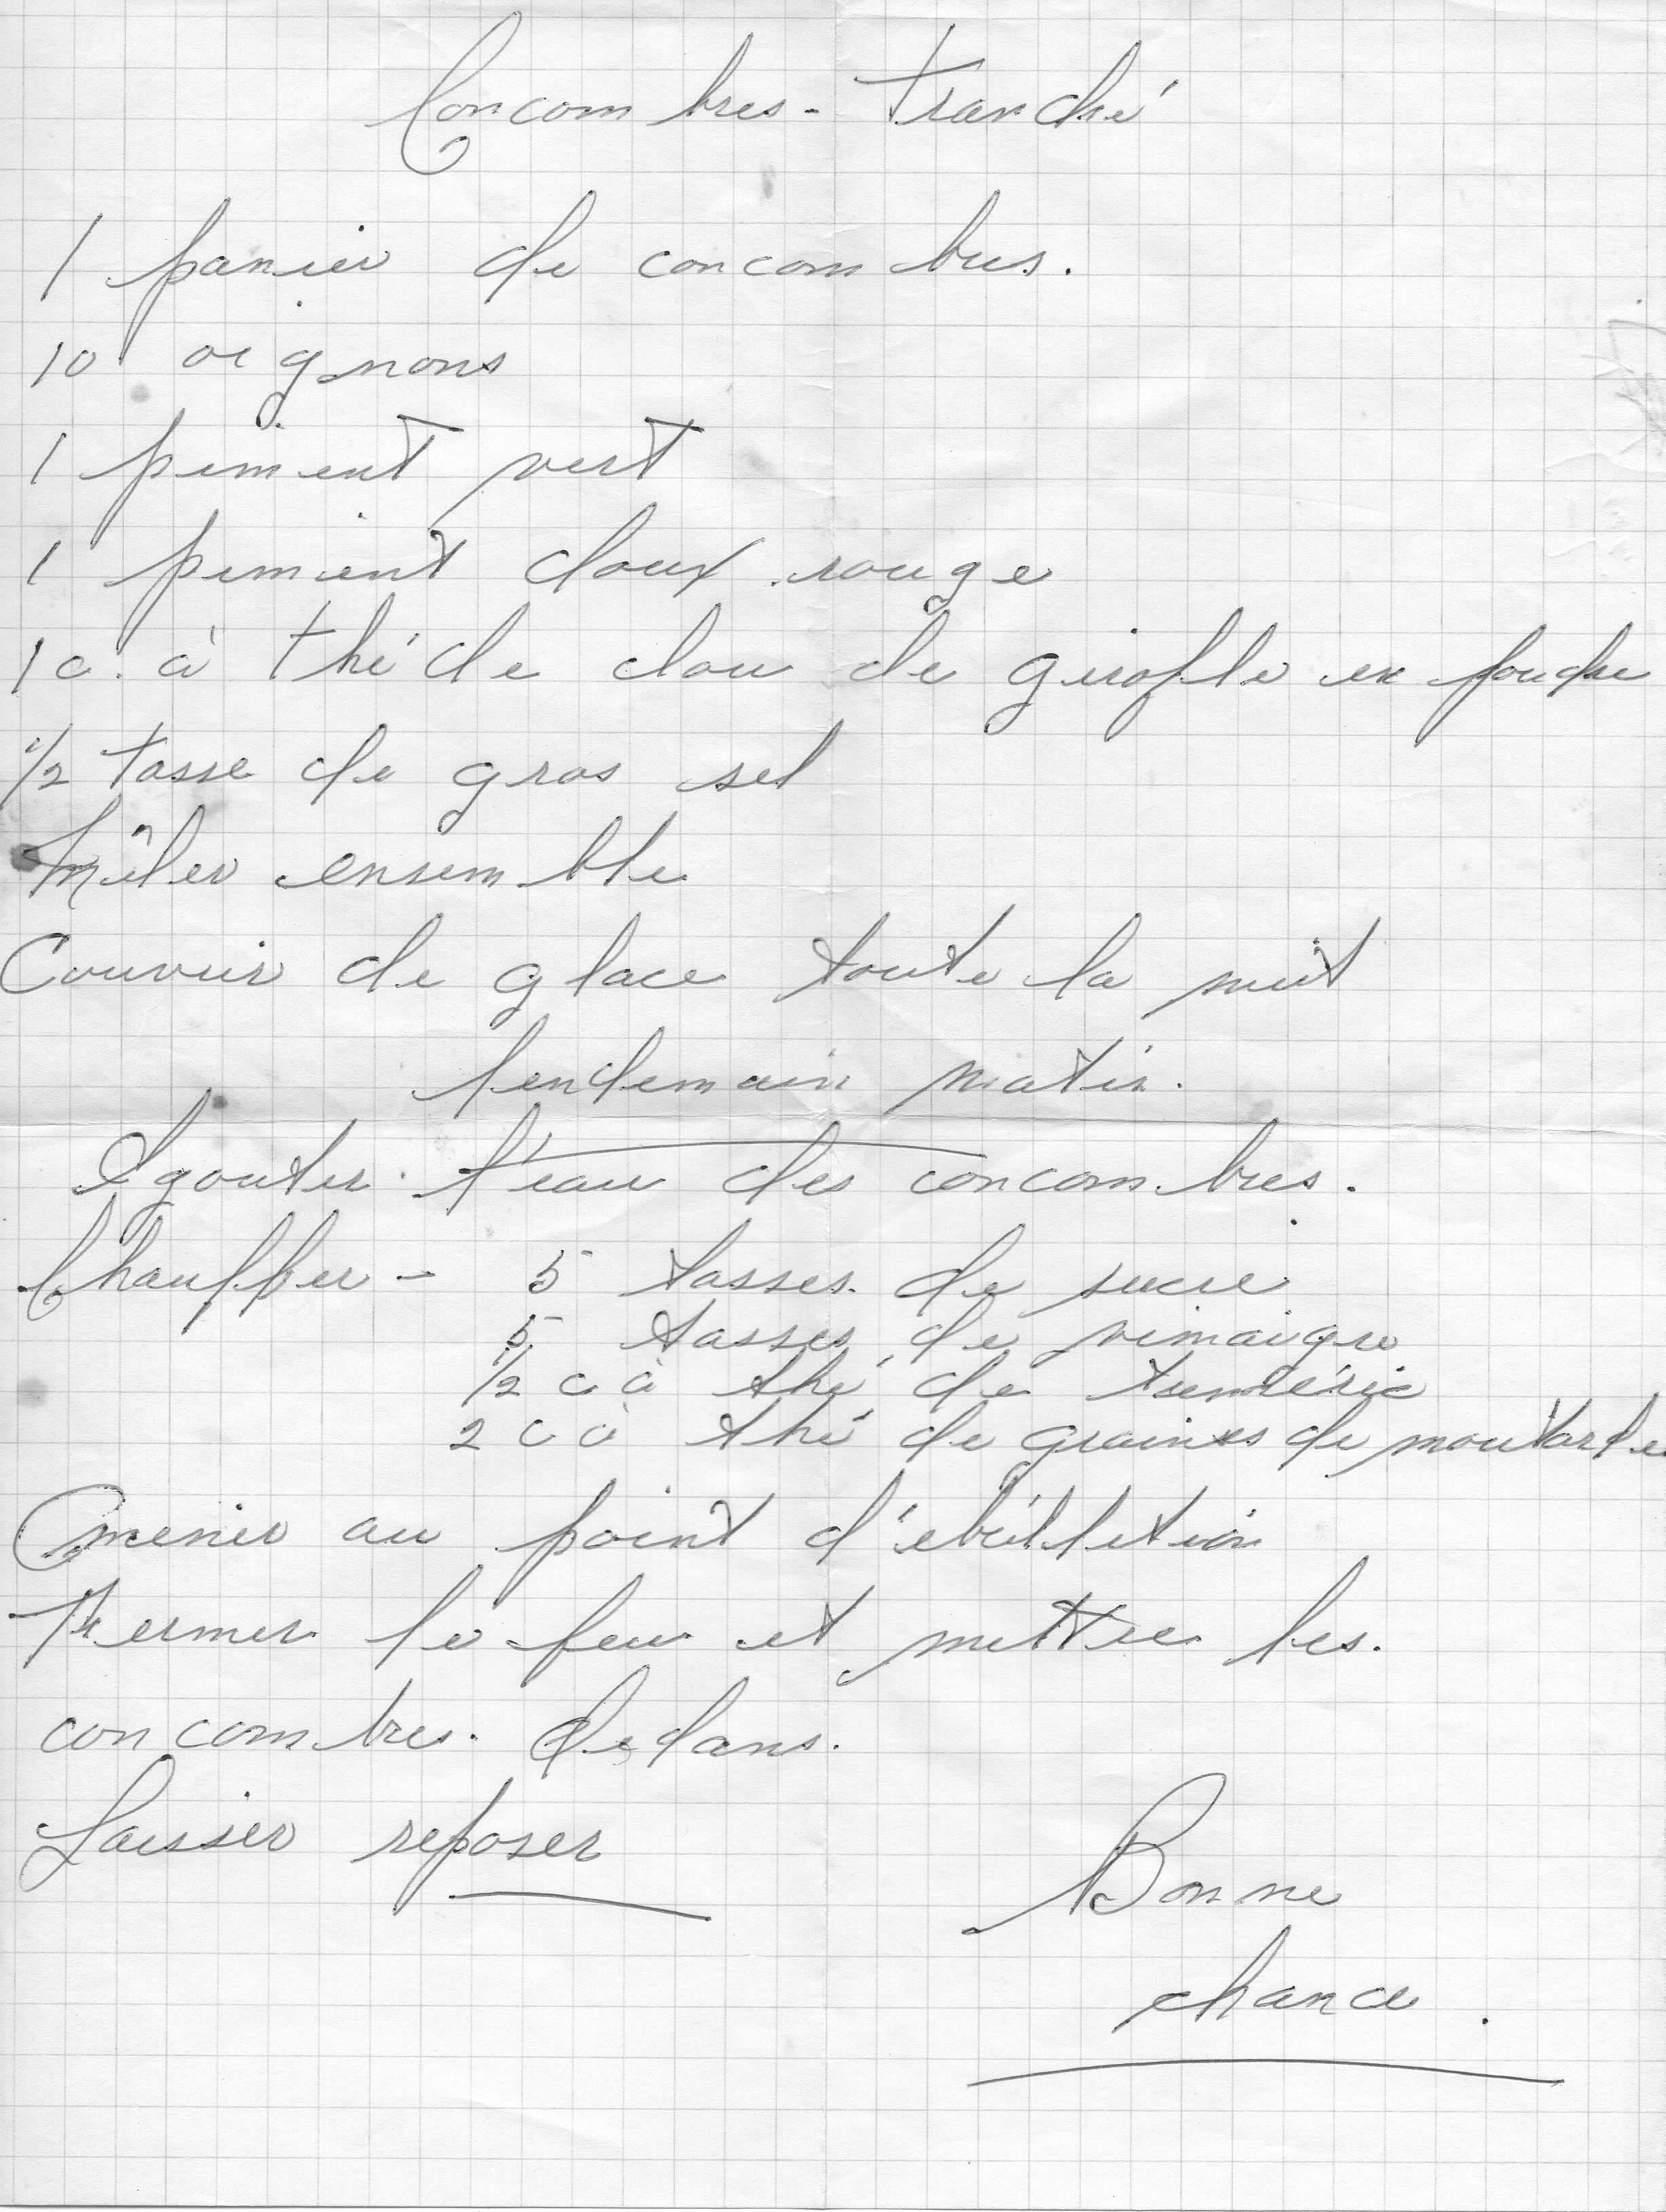 Concombres - tranché
1 panier de concombres.
10 oignons
1 piment vert
1 piment doux rouge
1 c. à thé de clou de girofle en poudre
1/2 tasse de gros sel
Mêler ensemble
Couvrir de glace toute la nuit
lendemain matin.
Egouter l'eau des concombres.
Chauffer - 5 tasses de sucre
5 tasses de vinaigre
1/2 c à thé de tuméric
2 c à thé de graines de moutarde
Amener au point d'ébulletion
Fermer le feu et mettre les.
concombres. dedans.
Laisser reposer
Bonne
chance.